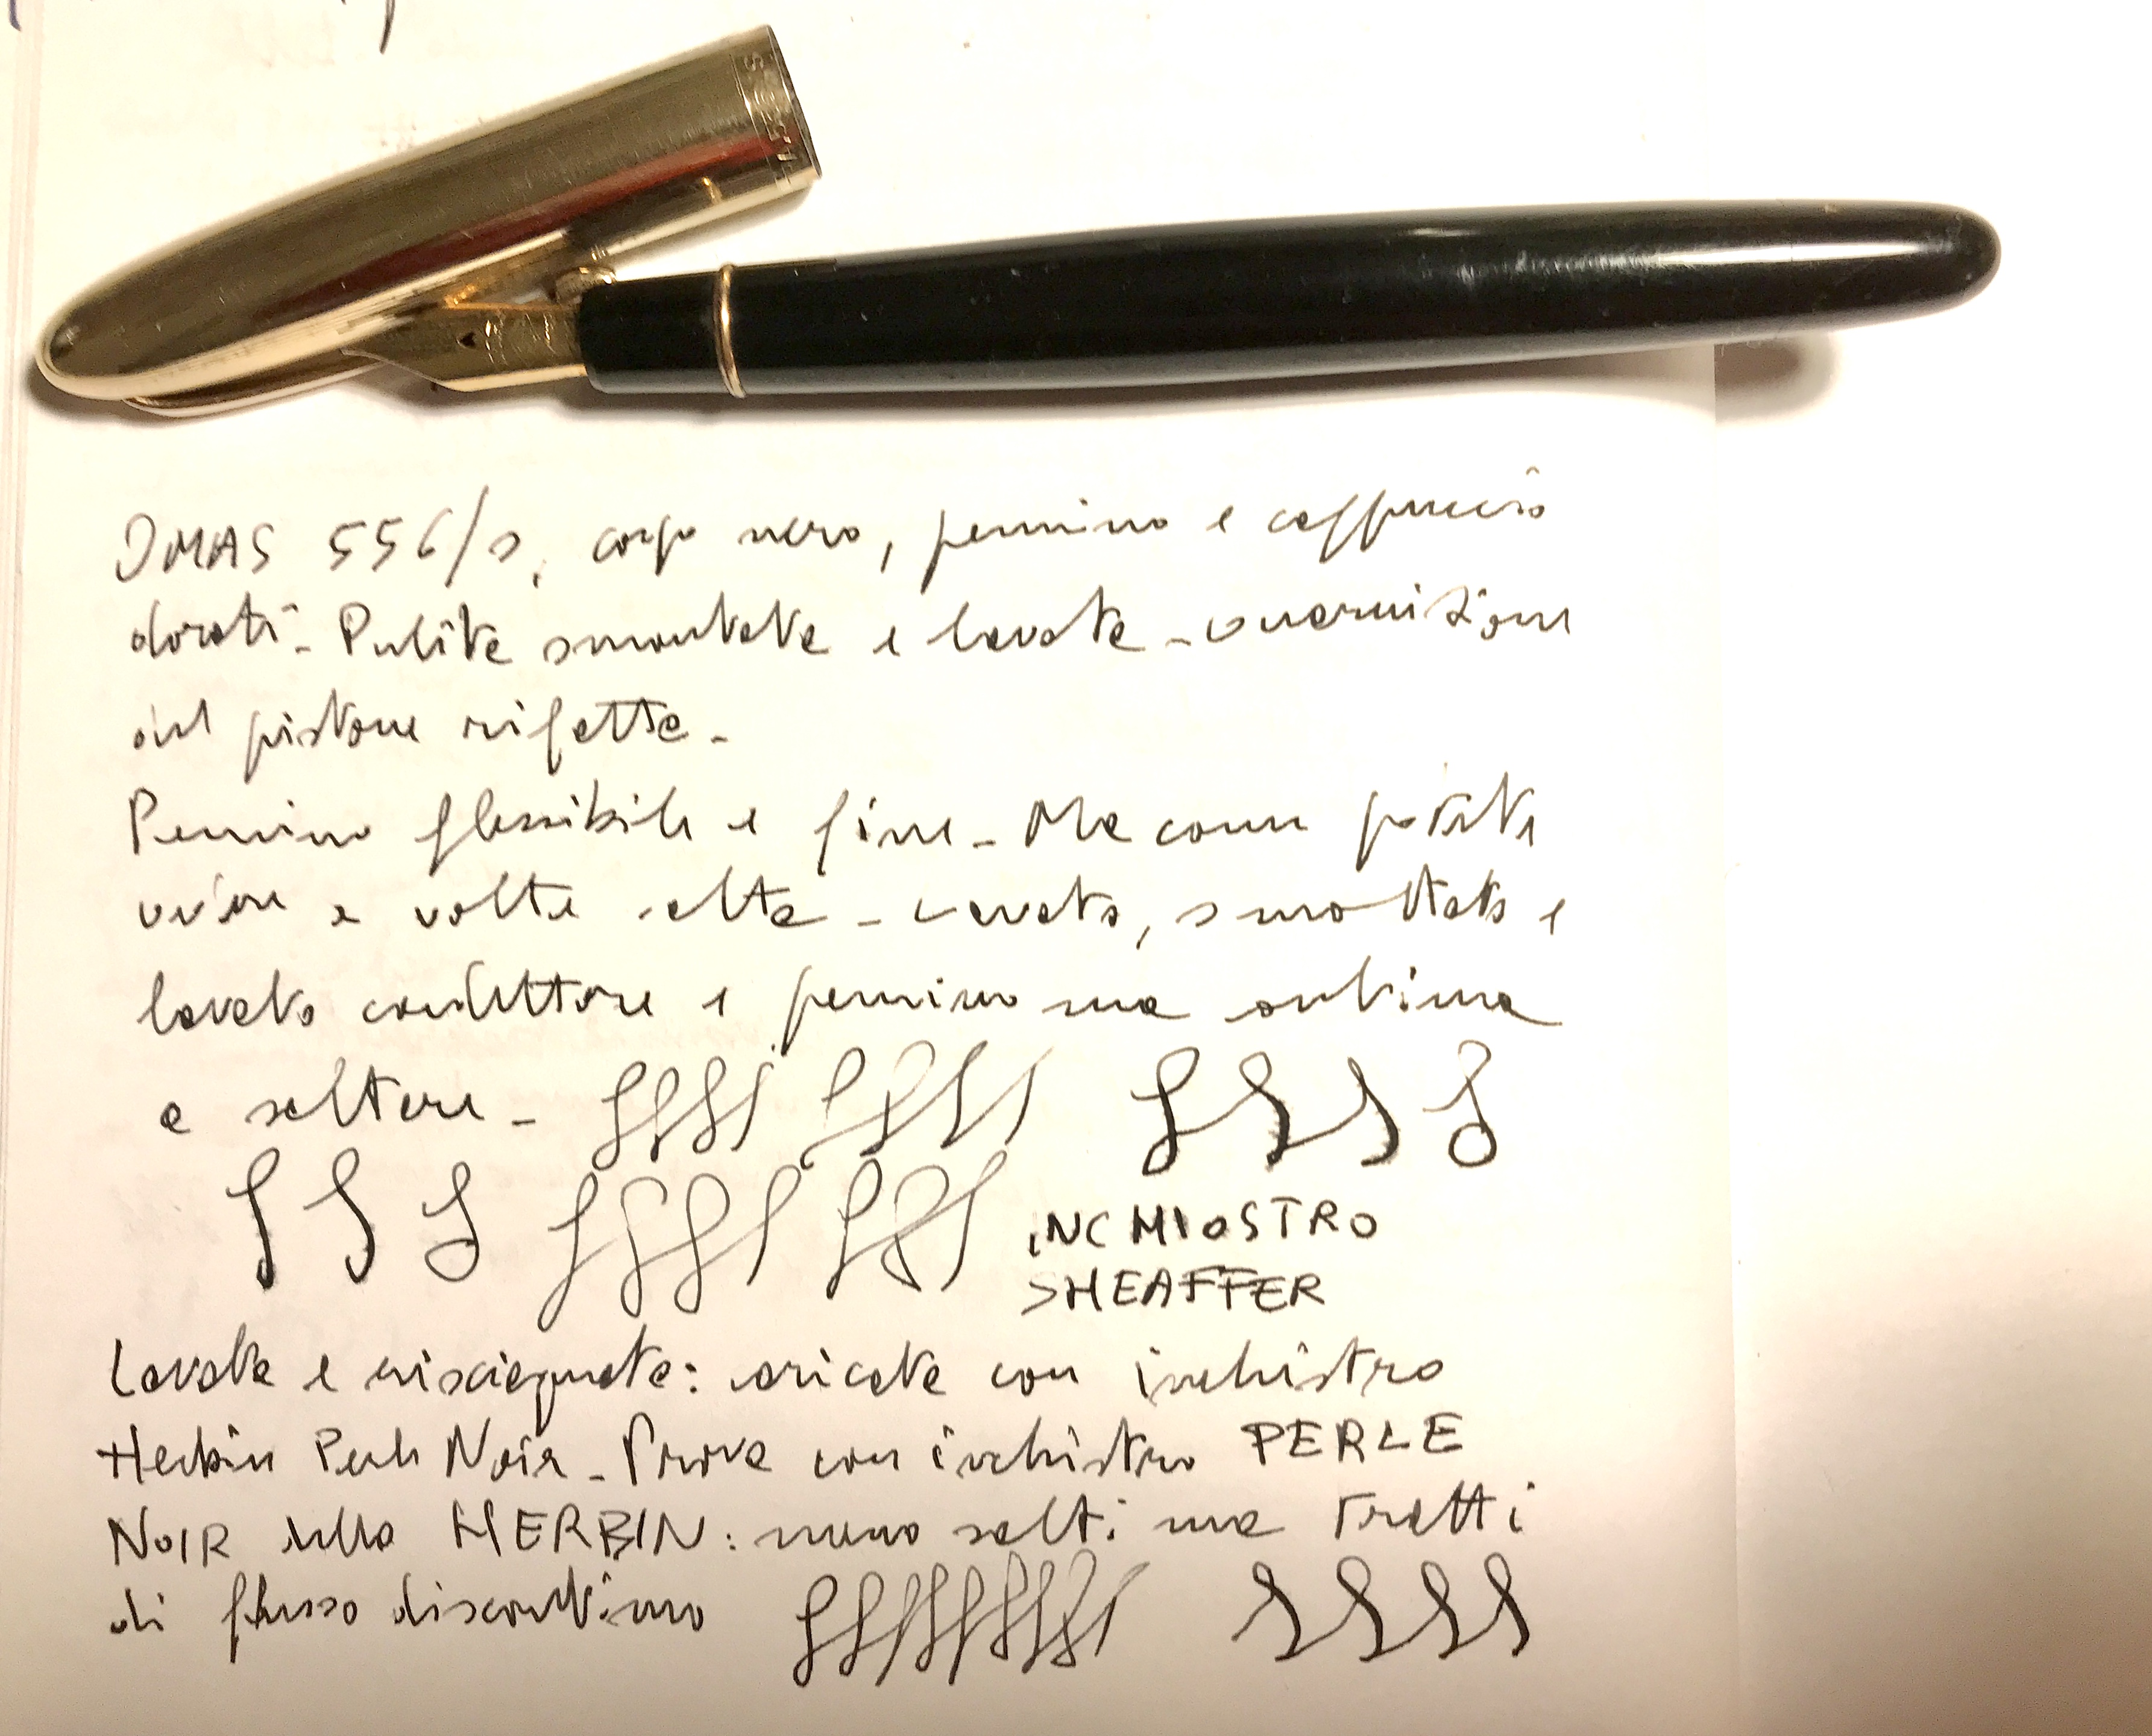 OMAS 556/S, corpo nero, pennino e cappuccio
dorati - Pulita smontata e lavata - guarnizione
del pistone rifatta -
Pennino flessibile e fine - Ma come potete
vedere a volte salta - Lavato, smontato e
lavato conduttore e pennino ma continua
a saltare -
INCHIOSTRO
SHEAFFER
Lavata e risciacquata: caricata con inchiostro
Herbin Perle Noir - Prova con inchiostro PERLE
NOIR della HERBIN: meno salti ma tratti
di flusso discontinuo